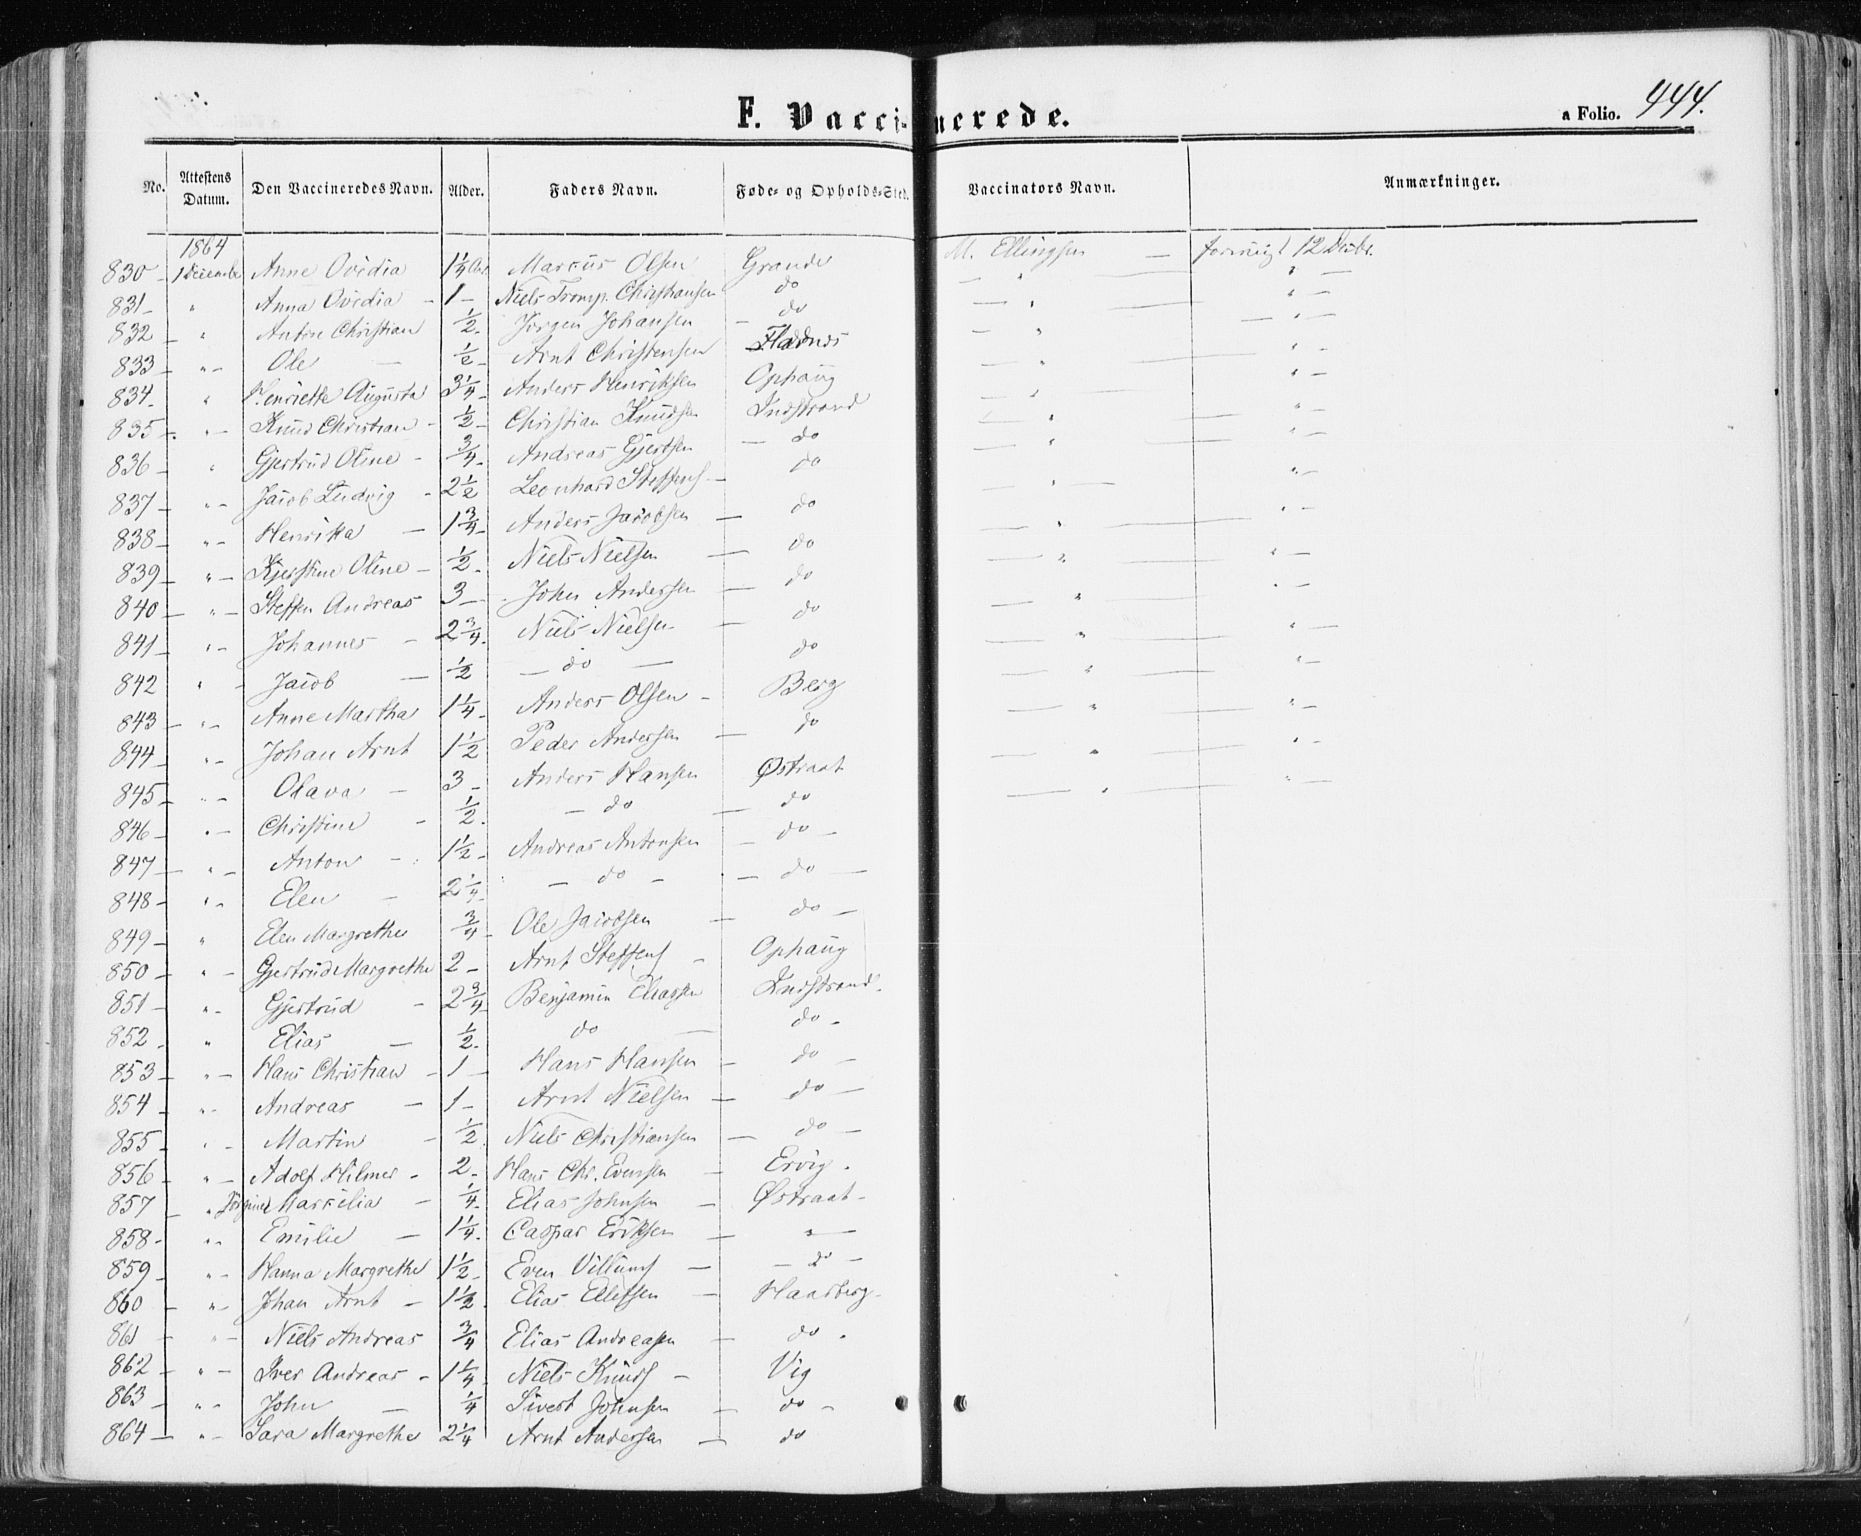 F. Vaccinerede.
a Folio. 444.
No. Attestens Datum. Den Vaccineredes Navn. Alder. Faders Navn. Føde- og Opholds-Sted. Vaccinators Navn. Anmærkninger.
1864
830 1 Decembr Anne Ovidia 1 1/4 Aar Marcus Olsen Grande M. Ellingsen 12 Decbr.
831 " Anna Ovidia 1 Niels Tromp. Christiansen do " "
832 " Anton Christian 1/2 Jørgen Johansen do " "
833 " Ole 1/2 Arnt Christensen Fladnes " "
834 " Henriette Augusta 3 1/4 Anders Henriksen Ophaug " "
835 " Knud Christian 1/2 Christian Knudsen Indstrand " "
836 " Gjertrud Oline 3/4 Andreas Gjertsen do " "
837 " Jacob Ludvig 2 1/2 Leonhard Steffens do " "
838 " Henrikka 1 3/4 Anders Jacobsen do "
839 " Kjerstine Oline 1/2 Niels Nielsen do " "
840 " Steffen Andreas 3 John Andersen do " "
841 " Johannes 2 3/4 Niels Nielsen do " "
842 " Jacob 1/2 do do " "
843 " Anne Martha 1 1/4 Anders Olsen Berg " "
844 " Johan Arnt 1 1/2 Peder Andersen do " "
845 " Olava 3 Anders Hansen Østraat " "
846 " Christine 1/2 do do
847 " Anton 1 1/2 Andreas Antonsen do
848 " Elen 2 1/4 do do
849 " Elen Margrethe 3/4 Ole Jacobsen do
850 " Gjertrud Margrethe 2 Arnt Steffens Ophaug
851 " Gjertrud 2 3/4 Benjamin Eliassen Indstrand
852 " Elias 1/2 do do
853 " Hans Christian 1 Hans Hansen do
854 " Andreas 1 Arnt Nielsen do
855 " Martin 1/2 Niels Christiansen do
856 " Adolf Hilmer 2 Hans Chr. Evensen Ervig
857 " Jørgine Marselia 1/4 Elias Johnsen Østraat
858 " Emilie 1 1/4 Caspar Eriksen "
859 " Hanna Margrethe 1 1/2 Even Villums do
860 " Johan Arnt 1 1/2 Elias Ellefsen Haarberg
861 " Niels Andreas 3/4 Elias Andreasen do
862 " Iver Andreas 1 1/4 Niels Knuds Vig
863 " John 1/4 Sivert Johnsen do
864 " Sara Margrethe 2 1/4 Arnt Andersen do